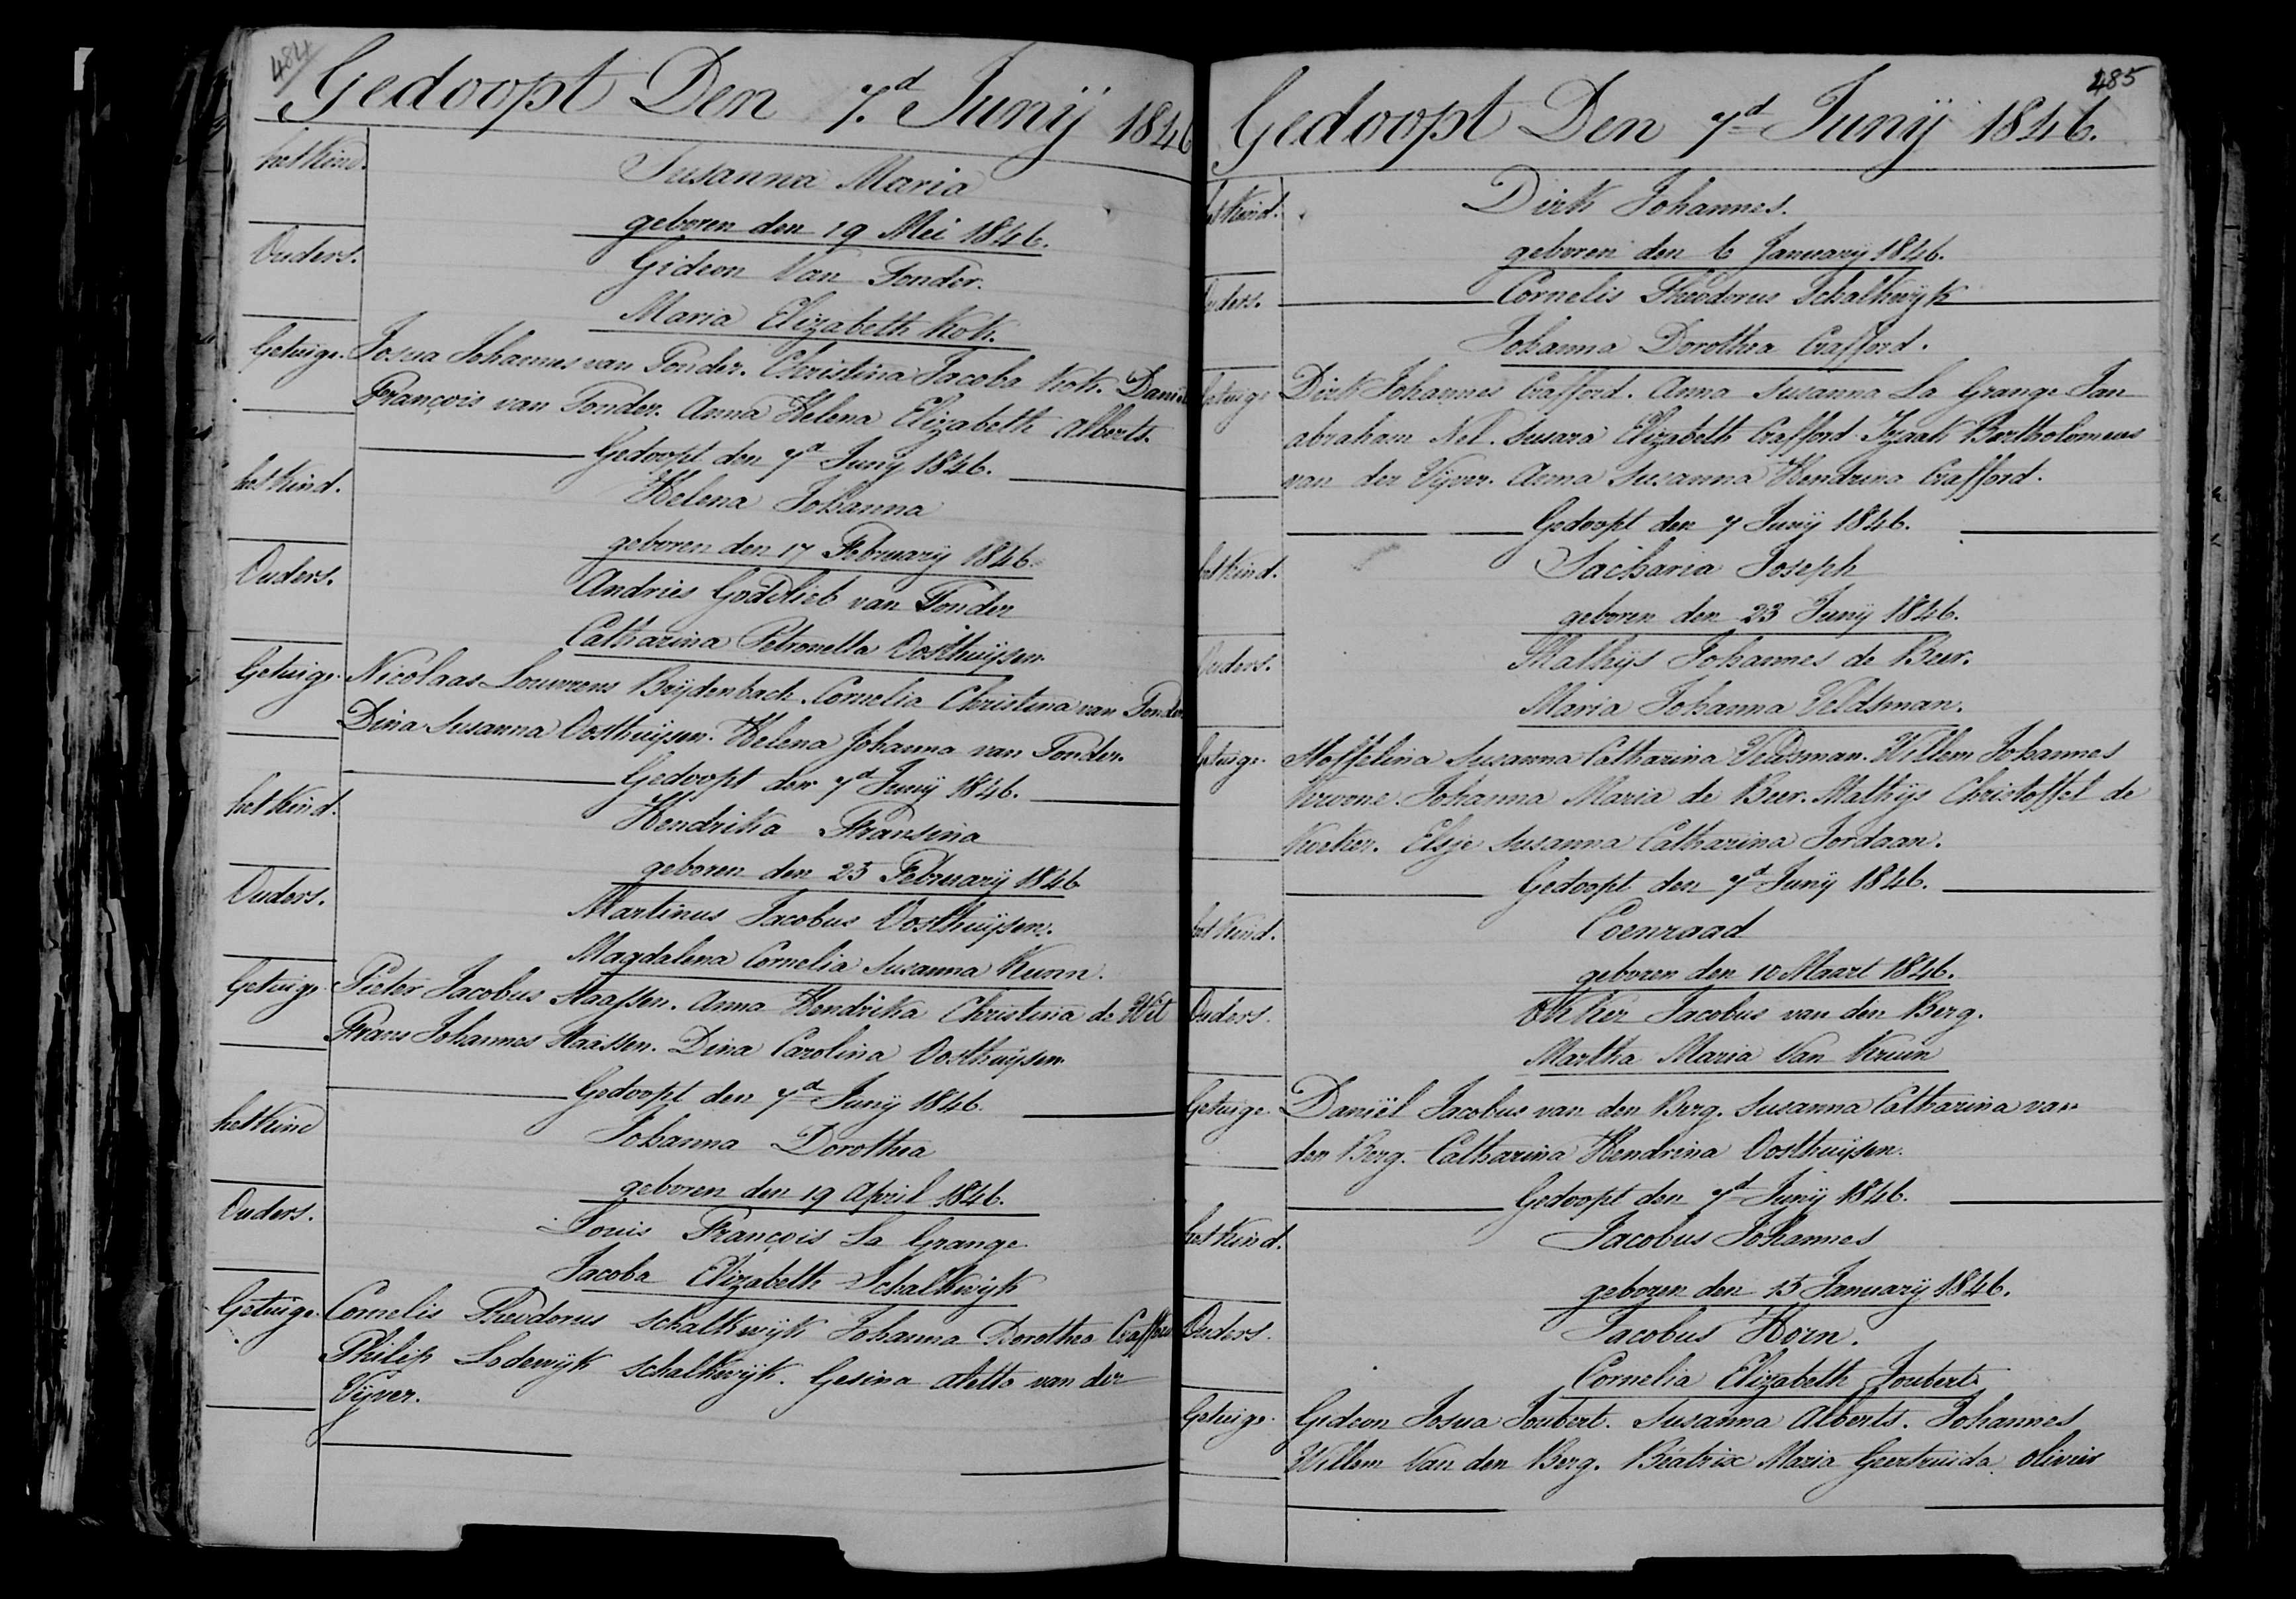 484
Gedoopt Den 7.d Junij 1846
het Kind.
Susanna Maria
geboren den 19 Mei 1846.
Ouders.
Gideon Van Tonder.
Maria Elizabeth Kok.
Getuige. Josua Johannes van Tonder. Christina Jacoba Kok. Daniel
François van Tonder. Anna Helena Elizabeth Alberts.
Gedoopt den 7d Junij 1846.
het Kind.
Helena Johanna
geboren den 17 February 1846.
Ouders.
Andries Goddlieb van Tonder
Catharina Petronella Oosthuijsen.
Getuige. Nicolaas Louwrens Breijdenbach. Cornelia Christina van Tonder
Dina Susanna Oosthuijsen. Helena Johanna van Tonder.
Gedoopt den 7d Junij 1846.
het Kind.
Hendrika Fransina
geboren den 25 February 1846
Ouders.
Martinus Jacobus Oosthuijsen.
Magdalena Cornelia Susanna Kunn.
Getuige. Pieter Jacobus Maassen. Anna Hendrika Christina de Wit
Frans Johannes Maassen. Dina Carolina Oosthuijsen
Gedoopt den 7d Junij 1846.
het Kind
Johanna Dorothea
geboren den 19 April 1846.
Ouders.
Louis François La Grange
Jacoba Elizabeth Schalkwijk
Getuige. Cornelis Theodorus Schalkwijk Johanna Dorothea Crafford
Philip Lodewijk Schalkwijk. Gesina Aletta van der
Vijver.
485
Gedoopt Den 7d Junij 1846.
het Kind.
Dirk Johannes.
geboren den 6 January 1846.
Ouders.
Cornelis Theodorus Schalkwijk
Johanna Dorothea Crafford.
Getuige Dirk Johannes Crafford. Anna Susanna La Grange Jan
abraham Nel. Susara Elizabeth Crafford. Izaak Bartholomeus
van der Vijver. Anna Susanna Hendrina Crafford.
Gedoopt den 7 Junij 1846.
het Kind.
Sacharia Joseph
geboren den 23 Junij 1846.
Ouders.
Mathijs Johannes de Beer.
Maria Johanna Veldsman.
Getuige. Stoffelina Susanna Catharina Veldsman. Willem Johannes
Johanna Maria de Beer. Mathijs Christoffel de
Elsje Susanna Catharina Jordaan.
Gedoopt den 7d Junij 1846.
het Kind.
Coenraad
geboren den 10 Maart 1846.
Ouders.
Okker Jacobus van den Berg.
Martha Maria Van Kruin
Getuige. Daniël Jacobus van den Berg. Susanna Catharina van
den Berg. Catharina Hendrina Oosthuijsen.
Gedoopt den 7d Junij 1846.
het Kind.
Jacobus Johannes
geboren den 15 January 1846.
Ouders.
Jacobus Horn.
Cornelia Elizabeth Joubert.
Getuige. Gideon Josua Joubert. Susanna Alberts. Johannes
Willem Van den Berg. Beatrix Maria Geertruida Olivier